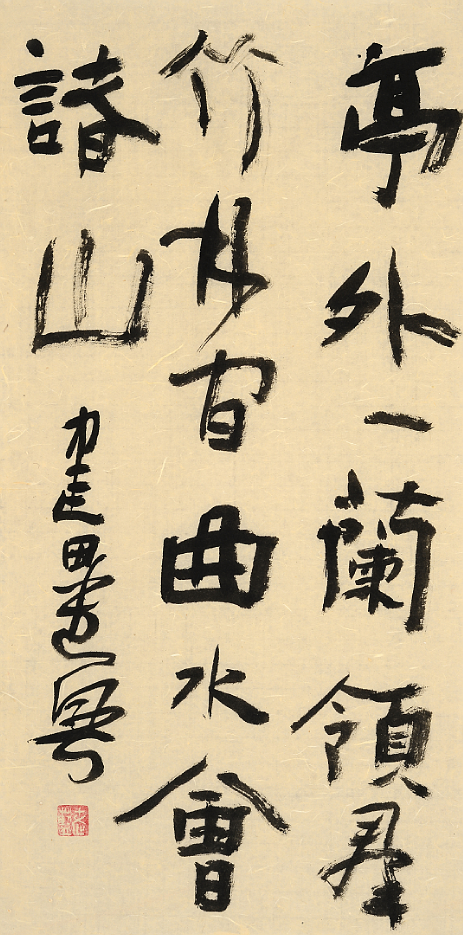 亭外一蘭領羣
竹林間曲水會
諸山